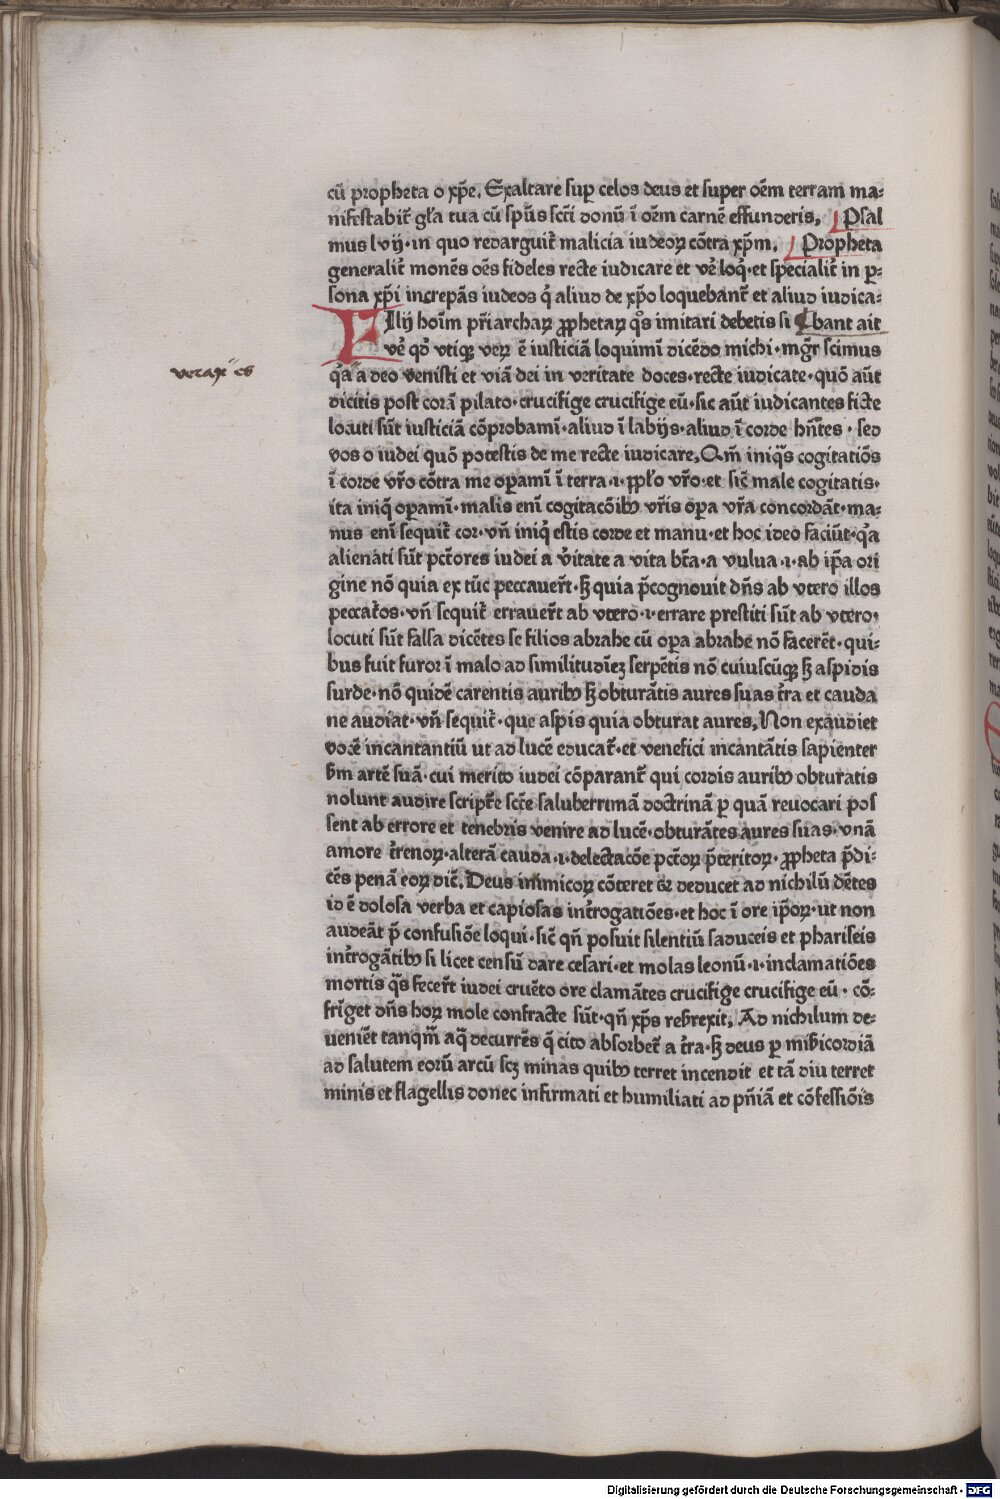 cū propheta o xp̄e. Exaltare sup celos deus et super oēm terram ma⸗
nifestabit̄ gl̄a tua cū sp̄us scti donū ī oēm carnē effunderis. Psal
mus lvij·in quo redarguit̄ malicia iudeoꝝ cōtra xp̄m. Propheta
generalit̄ monēs oēs fideles recte iudicare et vē loq̄·et specialit̄ in ꝑ⸗
sona xp̄i increpās iudeos q̄ aliud de xp̄o loquebant̄ et aliud iudica⸗
FIlij hoīm pr̄iarchaꝝ ꝓphetaꝝ q̄s imitari debetis si bant ait
vē qđ vtiqꝫ veꝝ ē iusticiā loquimī dicēdo michi·mgr̄ scimus
verax es
q̄a a deo venisti et viā dei in veritate doces·recte iudicate·quō aūt
dicitis post corā pilato·crucifige crucifige eū·sic aūt iudicantes ficte
locuti sūt iusticiā cōprobamī·aliud ī labijs·aliud ī corde hn̄tes·sed
vos o iudei quō potestis de me recte iudicare. Qm̄ iniq̄s cogitatiōs
ī corde vr̄o cōtra me oꝑamī ī terra·i·ppl̄o vr̄o·et sic̄ male cogitatis·
ita iniq̄ oꝑamī·malis enī cogitacōibꝫ vr̄is oꝑa vr̄a concordāt·ma⸗
nus enī sequit̄ cor·vn̄ iniq̄ estis corde et manu·et hoc ideo faciūt·q̄a
alienati sūt pct̄ores iudei a v̄itate a vita bt̄a·a vulua·i·ab ip̄a ori
gine nō quia ex tūc peccauer̄t·sꝫ quia p̄cognouit dn̄s ab vtero illos
peccat̄os·vn̄ sequit̄ errauer̄t ab vtero·i·errare prestiti sūt ab vtero·
locuti sūt falsa dicētes se filios abrahe cū oꝑa abrahe nō facerēt·qui⸗
bus fuit furor ī malo ad similitudīeꝫ serpētis nō cuiuscūqꝫ sꝫ aspidis
surde·nō quidē carentis auribꝫ sꝫ obturātis aures suas t̄ra et cauda
ne audiat·vn̄ sequit̄·que aspis quia obturat aures. Non exaudiet
vocē incantantiū ut ad lucē educat̄·et venefici incantātis sapienter
sm̄ artē suā·cui merito iudei cōparant̄ qui cordis auribꝫ obturatis
nolunt audire script̄e scte saluberrimā doctrinā ꝑ quā reuocari pos
sent ab errore et tenebris venire ad lucē·obturātes aures suas·vnā
amore t̄renoꝝ·alterā cauda·i·delectacōe pct̄oꝝ p̄teritoꝝ·ꝓpheta p̄di⸗
cēs penā eoꝝ dic̄. Deus inimicoꝝ cōteret ⁊ deducet ad nichilū dētes
id ē dolosa verba et capiosas int̄rogatiōes·et hoc ī ore ip̄oꝝ·ut non
audeāt p̄ confusiōe loqui·sic̄ qn̄ posuit silentiū saduceis et phariseis
int̄rogātibꝫ si licet censū dare cesari·et molas leonū·i·inclamatiōes
mortis q̄s fecer̄t iudei cruēto ore clamātes crucifige crucifige eū·cō⸗
frīget dn̄s hoꝝ mole confracte sūt·qn̄ xp̄s resrexit. Ad nichilum de⸗
ueniēt tanqm̄ aq̄ decurrēs q̄ cito absorbet̄ a t̄ra·sꝫ deus ꝑ misicordiā
ad salutem eorū arcū scꝫ minas quibꝫ terret incendit et tā diu terret
minis et flagellis donec infirmati et humiliati ad pn̄iā et cōfessiōis
Digitalisierung gefördert durch die Deutsche Forschungsgemeinschaft - DFG